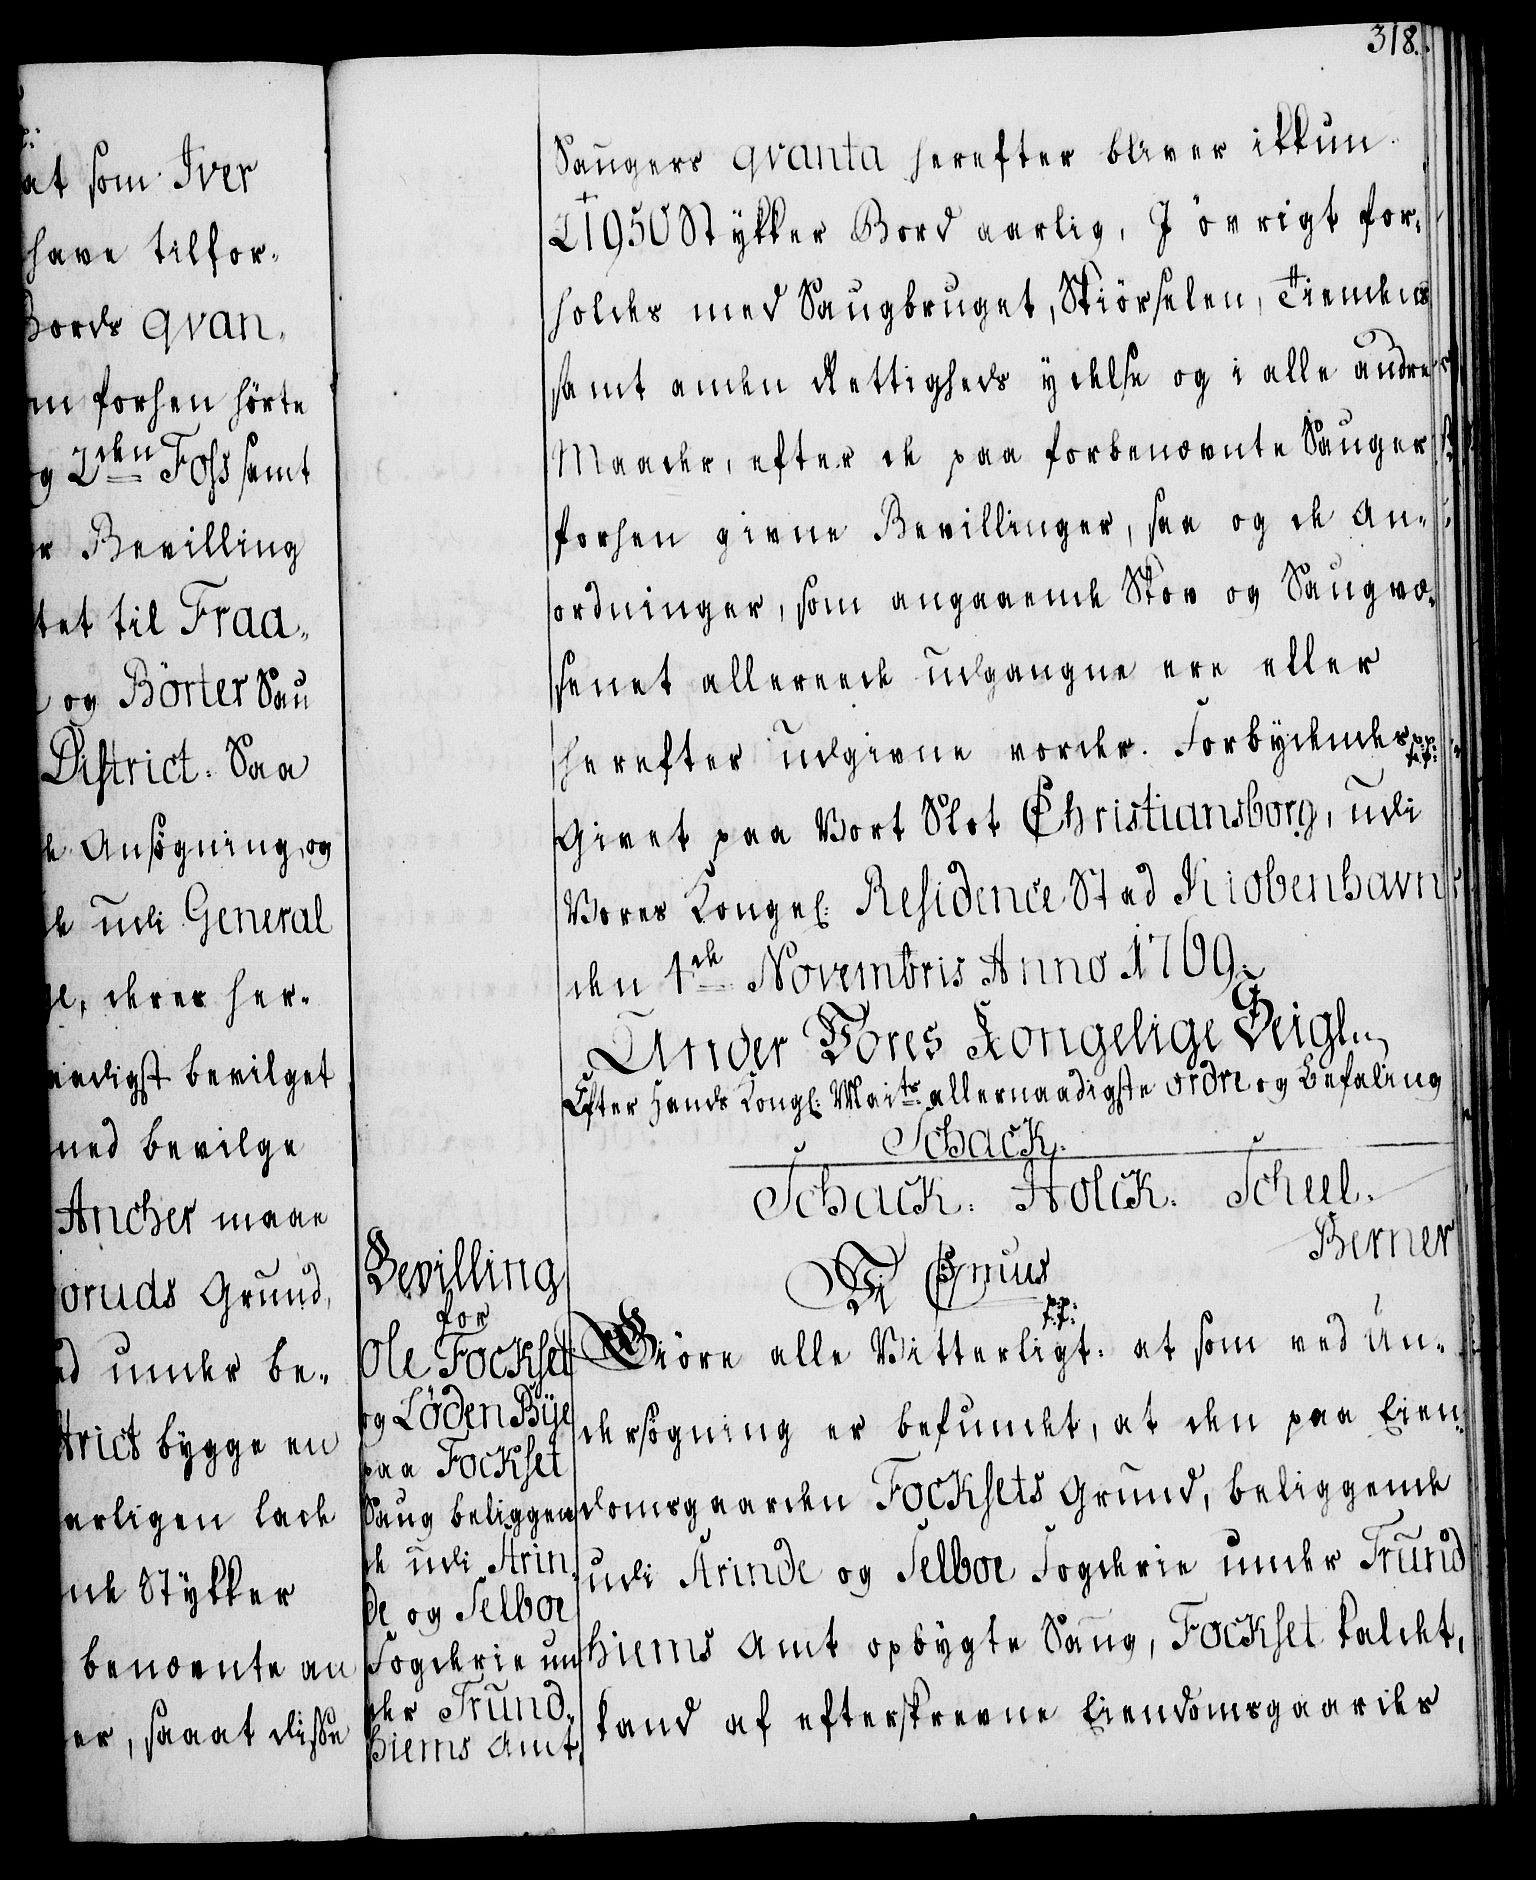 318.
at som Iver
have tilfor-
Bords qvan-
m forhen hörte
og 2den Foss samt
r Bevilling
tet til Fraa-
og Börter Sau
District. Saa
de Ansögning, og
de udi General
ge, deres her-
aadigst bevilget
med bevilge
Ancher maae
oruds Grund,
ed under be-
strict bygge en
aarligen lade
ne Stykker
benævnte an
er, saaat disse
Saugers qvanta herefter bliver ikkun
21950 Stykker Bord aarlig, I övrigt for-
holdes med Saugbruget, Skiörselen, Tiendens
samt anden Rettigheds ydelse og i alle andre
Maader, efter de paa forbenævnte Sauger
forhen givne Bevillinger, saa og de An-
ordninger, som angaaende Skov og Saugvæ-
senet allereede udgangne ere eller
herefter udgivne vorder. Forbydendes p.p:
Givet paa Vort Slot Christiansborg, udi
Vores Kongel: Residence Stad Kiobenhavn
den 1de Novembris Anno 1769.
Under Vores Kongelige Seigl.
Efter Hands Kongl: Maits allernaadigste ordre og Befaling
Schack.
Schack. Holck. Scheel.
Berner
Bevilling
for
Ole Fockset
og Löden Bye
paa Fockset
Saug beliggen
de udi Strin
de og Selboe
Fogderie un
der Trund-
hiems Amt.
Vi C
Giöre alle Vitterligt p.p: at som ved Un-
dersögning er befundet, at den paa Eien-
domsgaarden Focksets Grund, beliggende
udi Strinde og Selboe Fogderie under Trund
hiems Amt opbygte Saug, Fockset kaldet,
kand af efterskrevne Eiendomsgaardes